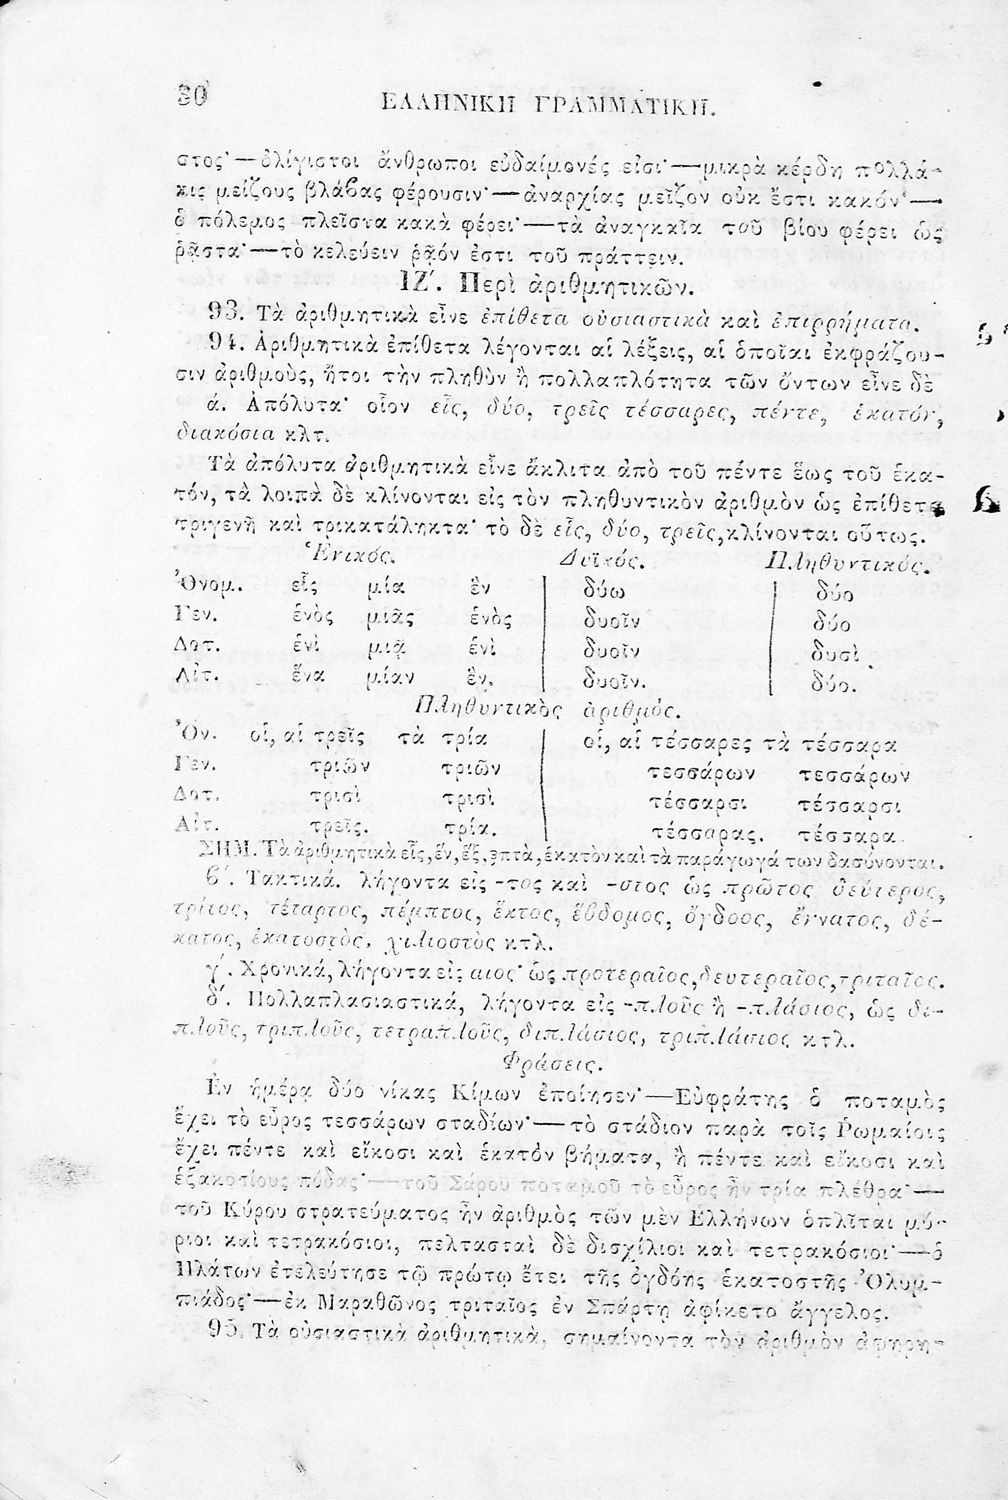 30
ΕΛΛΗΝΙΚΗ ΓΡΑΜΜΑΤΙΚΗ.
στος·—ὀλίγιστοι ἄνθρωποι εὐδαίμονές εἰσι·—μικρὰ κέρδη πολλά-
κις μείζους βλάβας φέρουσιν·—ἀναρχίας μεῖζον οὐκ ἔστι κακόν·—
ὁ πόλεμος πλεῖστα κακὰ φέρει·—τὰ ἀναγκαῖα τοῦ βίου φέρει ὡς
ῥᾷστα·—τὸ κελεύειν ῥᾷόν ἐστι τοῦ πράττειν.
ΙΖ΄. Περὶ ἀριθμητικῶν.
93. Τὰ ἀριθμητικὰ εἶνε ἐπίθετα οὐσιαστικὰ καὶ ἐπιρρήματα.
94. Ἀριθμητικὰ ἐπίθετα λέγονται αἱ λέξεις, αἱ ὁποῖαι ἐκφράζου-
σιν ἀριθμοὺς, ἤτοι τὴν πληθὺν ἢ πολλαπλότητα τῶν ὄντων εἶνε δὲ
ά. Ἀπόλυτα· οἷον εἷς, δύο, τρεῖς τέσσαρες, πέντε, ἑκατόν,
διακόσια κλτ.
Τὰ ἀπόλυτα ἀριθμητικὰ εἶνε ἄκλιτα ἀπὸ τοῦ πέντε ἕως τοῦ ἑκα-
τόν, τὰ λοιπὰ δὲ κλίνονται εἰς τὸν πληθυντικὸν ἀριθμὸν ὡς ἐπίθετα
τριγενῆ καὶ τρικατάληκτα· τὸ δὲ εἷς, δύο, τρεῖς, κλίνονται οὕτως.
Ἑνικός. Δυϊκός. Πληθυντικός.
Ὀνομ. εἷς μία ἓν δύω δύο
Γεν. ἑνὸς μιᾶς ἑνὸς δυοῖν δύο
Δοτ. ἑνὶ μιᾷ ἑνὶ δυοῖν δυσὶ
Αἰτ. ἕνα μίαν ἓν. δυοῖν. δύο.
Πληθυντικὸς ἀριθμός.
Ὀν. οἱ, αἱ τρεῖς τὰ τρία οἱ, αἱ τέσσαρες τὰ τέσσαρα
Γεν. τριῶν τριῶν τεσσάρων τεσσάρων
Δοτ. τρισὶ τρισὶ τέσσαρσι τέσσαρσι
Αἰτ. τρεῖς. τρία. τέσσαρας. τέσσαρα.
ΣΗΜ. Τὰ ἀριθμητικὰ εἷς, ἕν, ἕξ, ἑπτὰ, ἑκατὸν καὶ τὰ παράγωγά των δασύνονται.
β΄. Τακτικά. λήγοντα εἰς -τος καὶ -στος ὡς πρῶτος δεύτερος,
τρίτος, τέταρτος, πέμπτος, ἕκτος, ἕβδομος, ὄγδοος, ἔννατος, δέ-
κατος, ἑκατοστὸς, χιλιοστὸς κτλ.
γ΄. Χρονικά, λήγοντα εἰς αιος· ὡς προτεραῖος, δευτεραῖος, τριταῖος.
δ΄. Πολλαπλασιαστικά, λήγοντα εἰς -πλοῦς ἢ -πλάσιος, ὡς δι-
πλοῦς, τριπλοῦς, τετραπλοῦς, διπλάσιος, τριπλάσιος κτλ.
Φράσεις.
Ἐν ἡμέρᾳ δύο νίκας Κίμων ἐποίησεν·—Εὐφράτης ὁ ποταμὸς
ἔχει τὸ εὖρος τεσσάρων σταδίων·—τὸ στάδιον παρὰ τοῖς Ῥωμαίοις
ἔχει πέντε καὶ εἴκοσι καὶ ἑκατὸν βήματα, ἢ πέντε καὶ εἴκοσι καὶ
ἑξακοσίους πόδας·—τοῦ Σάρου ποταμοῦ τὸ εὖρος ἦν τρία πλέθρα·—
τοῦ Κύρου στρατεύματος ἦν ἀριθμὸς τῶν μὲν Ἑλλήνων ὁπλῖται μύ-
ριοι καὶ τετρακόσιοι, πελτασταὶ δὲ δισχίλιοι καὶ τετρακόσιοι·—ὁ
Πλάτων ἐτελεύτησε τῷ πρώτῳ ἔτει τῆς ὀγδόης ἑκατοστῆς Ὀλυμ-
πιάδος·—ἐκ Μαραθῶνος τριταῖος ἐν Σπάρτῃ ἀφίκετο ἄγγελος.
95. Τὰ οὐσιαστικὰ ἀριθμητικὰ, σημαίνοντα τὸν ἀριθμὸν ἀφηρη-